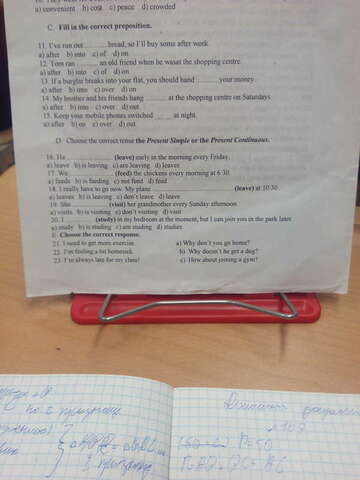 a) convenient b) cost c) peace d) crowded
C. Fill in the correct preposition.
11. I've run out .......... bread, so I'll buy some after work.
a) after b) into c) of d) on
12. Tom ran .......... an old friend when he wasat the shopping centre.
a) after b) into c) of d) on
13. If a burglar breaks into your flat, you should hand .......... your money.
a) after b) into c) over d) on
14. My brother and his friends hang .......... at the shopping centre on Saturdays.
a) after b) into c) over d) out
15. Keep your mobile phones switched ...... at night.
a) after b) on c) over d) out
D. Choose the correct tense the Present Simple or the Present Continuous.
16. He .......... (leave) early in the morning every Friday.
a) leave b) is leaving c) are leaving d) leaves
17. We .......... (feed) the chickens every morning at 6:30.
a) feeds b) is feeding c) not feed d) feed
18. I really have to go now. My plane .......... (leave) at 10:30.
a) leaves b) is leaving c) don't leave d) leave
19. She .......... (visit) her grandmother every Sunday afternoon.
a) visits b) is visiting c) don't visiting d) visit
20. I .......... (study) in my bedroom at the moment, but I can join you in the park later.
a) study b) is studing c) am studing d) studies
E. Choose the correct response.
21. I need to get more exercise. a) Why don't you go home?
22. I'm feeling a bit homesick. b) Why doesn't he get a dog?
23. I'm always late for my class! c) How about joining a gym?
по 2 признаку